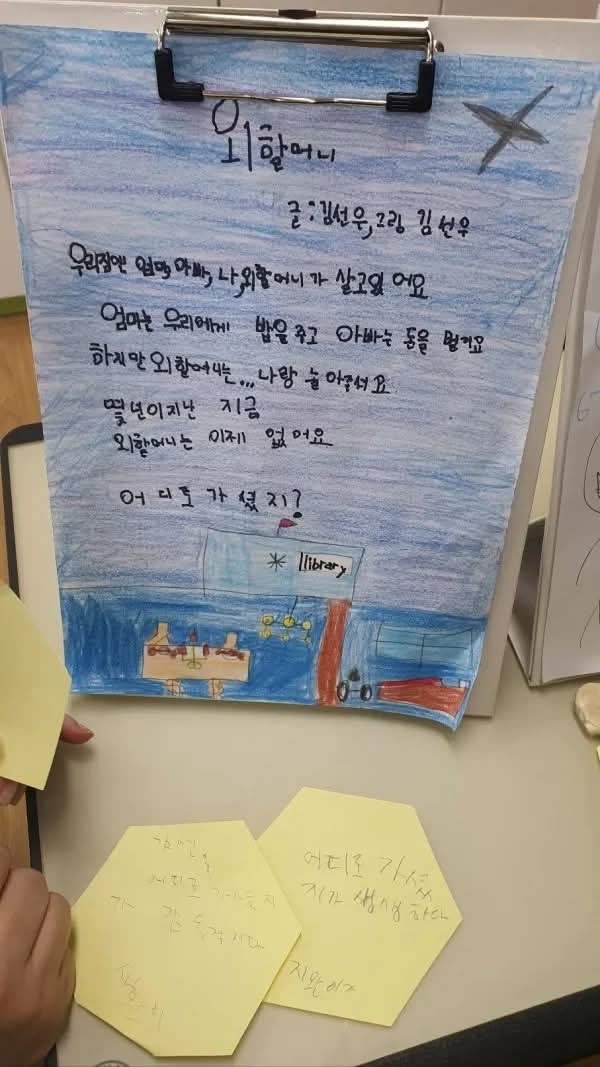 외할머니
글:김선우,그림 김선우
우리집엔 엄마,아빠,나,외할머니가 살고있어요
엄마는 우리에게 밥을주고 아빠는 돈을 벌어요
하지만 외할머니는...나랑 놀아주셔요
몇년이지난 지금
외할머니는 이제 없어요
어디로가셨지?
llibrary
어디로 가셨
지가 생생하다